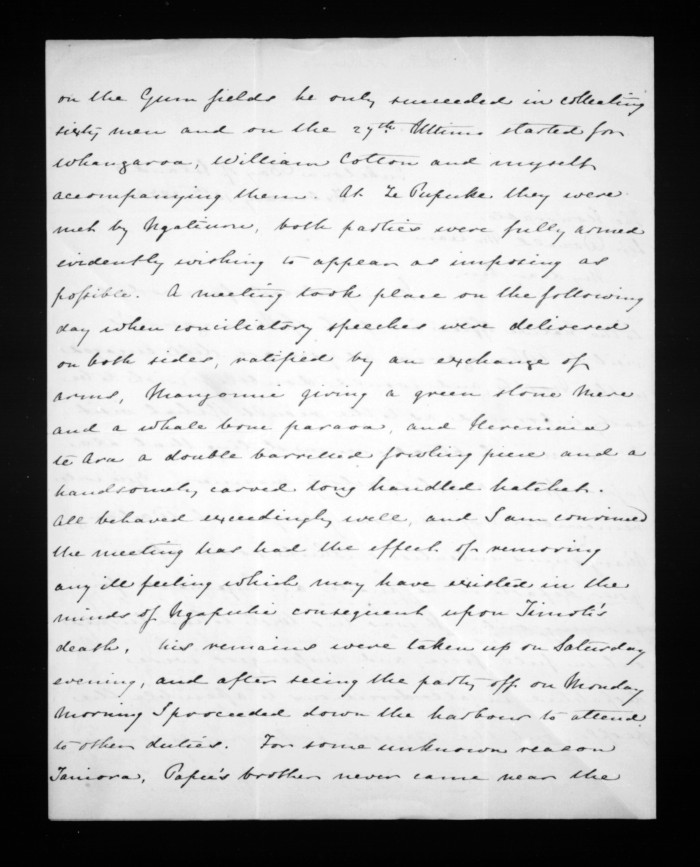 on the Gum fields he only succeeded in collecting
sixty men and on the 27th Ultimo started for
Whangaroa, William Cotton and myself
accompanying them. At Te Pupuke they were
met by Ngatiuru, both parties were fully armed
evidently wishing to appear as imposing as
possible. A meeting took place on the following
day when conciliatory speeches were delivered
on both sides, ratified by an exchange of
arms, giving a green stone Mere
and a whale bone paraoa, and Heremaia
te Ara a double barrelled fowling piece and a
handsomely carved long handled hatchet.
All behaved exceedingly well, and I am convinced
the meeting has had the effect of removing
any ill feeling which may have existed in the
minds of Ngapuhi consequent upon Timoti's
death, his remains were taken up on Saturday
evening, and after seeing the party off on Monday
Morning I proceeded down the harbour to attend
to other duties. For some unknown reason
brother never came near the